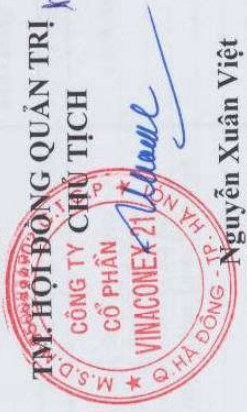 TM. HỘI ĐỒNG QUẢN TRỊ
CHỦ TỊCH
CÔNG TY
CỔ PHẦN
VINACONEX 21
Q. HÀ ĐÔNG - TP HÀ NỘI
Nguyễn Xuân Việt